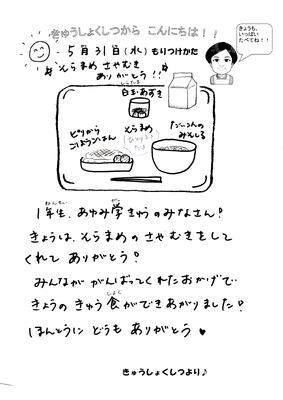 きゅうしょくしつから こんにちは！！
きょうも、
いっぱい
たべてね！！
5月31日(水)もりつけかた
そらまめ さやむき
ありがとう！！
しらたま
白玉あずき
ピリから
ごぼうごはん
そらまめ
だいこんの
みそしる
1年生、あゆみ学きゅうのみなさん！
きょうは、そらまめのさやむきをして
くれて ありがとう！
みんなが がんばってくれたおかげで
きょうの きゅう食ができあがりました！
ほんとうに どうも ありがとう♥
きゅうしょくしつより♪